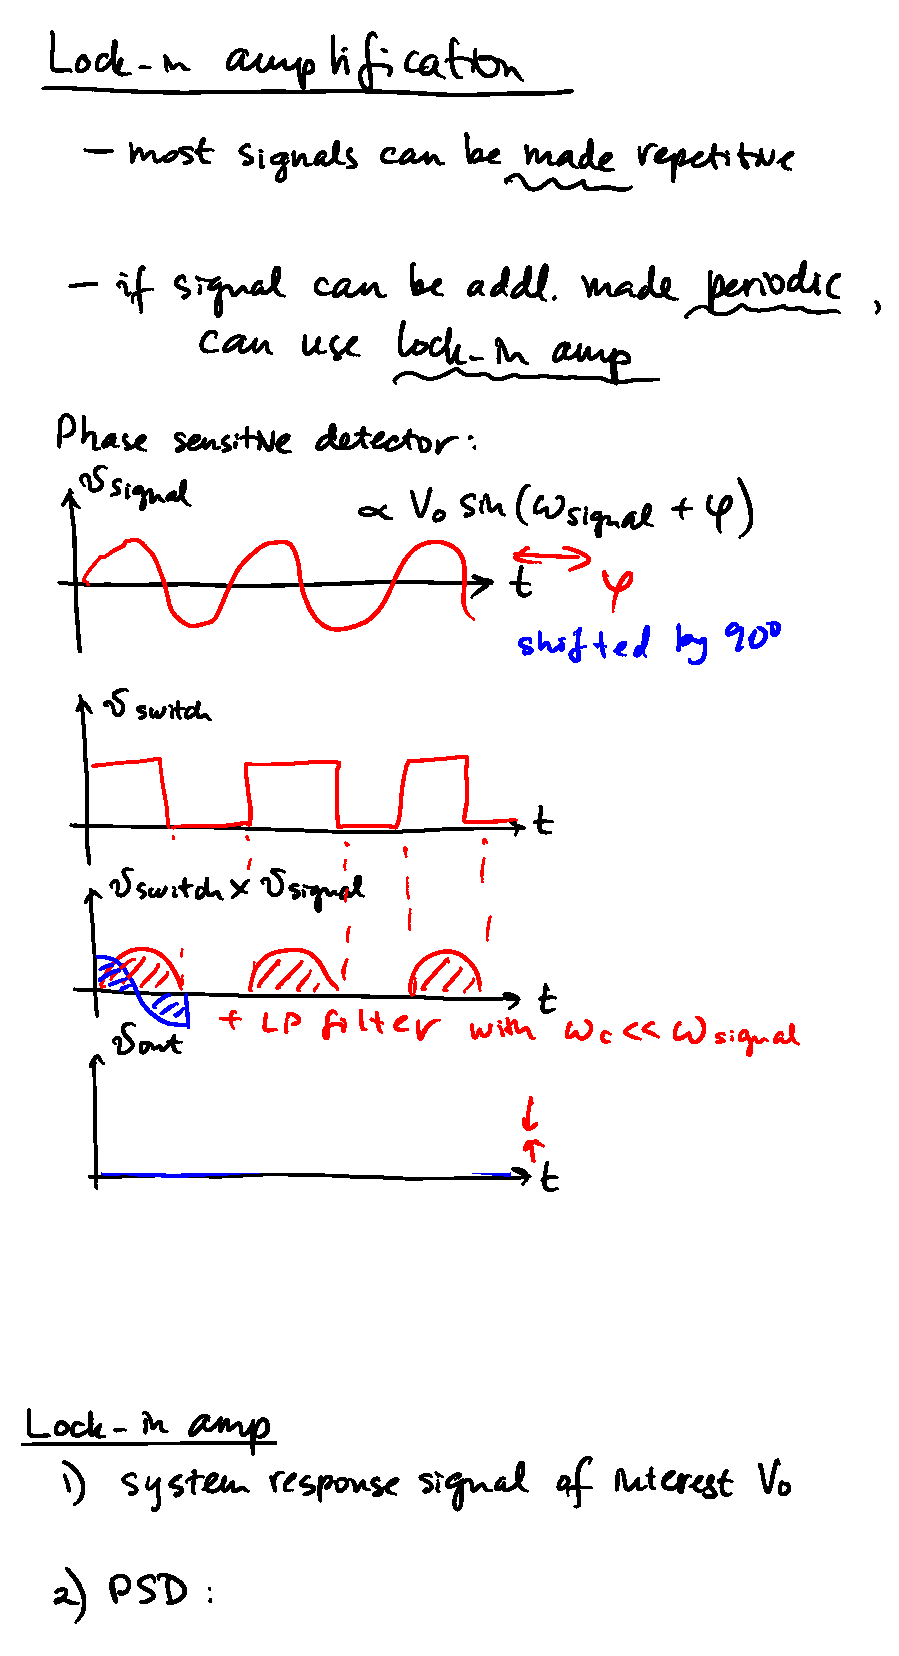 Lock-in amplification
- most signals can be made repetitive
- if signal can be addl. made periodic,
can use lock-in amp
Phase sensitive detector:
v signal
∝ V₀ sin(ω signal + φ)
t
φ
shifted by 90°
v switch
t
v switch x v signal
t
+ LP filter with ωc << ω signal
v out
t
Lock-in amp
1) system response signal of interest V₀
2) PSD: